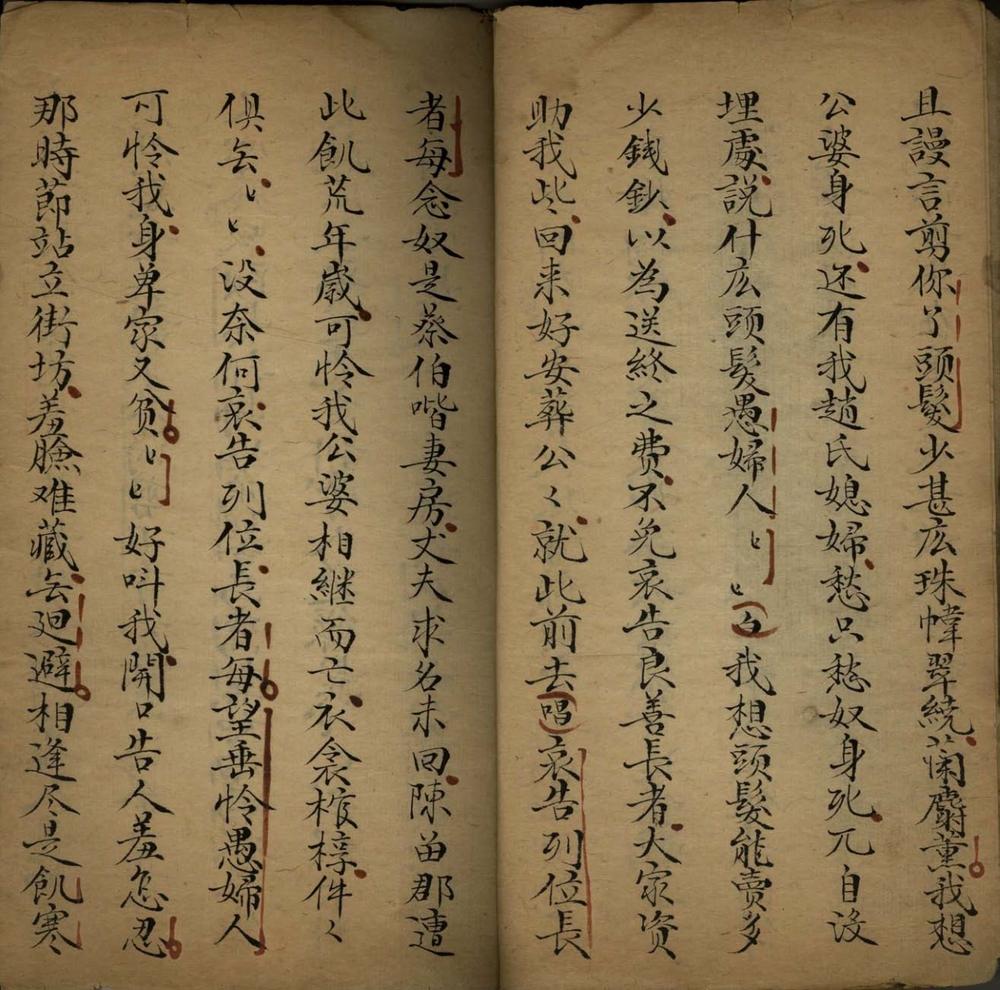 且謾言剪你了頭髮少甚庅珠幃翠繞蘭麝薰我想
公婆身死还有我趙氏媳婦愁只愁奴身死兀自没
埋處説什庅頭髮愚婦人ヒヒ白我想頭髮能賣多
少錢鈔以為送終之费不免哀告良善長者大家资
助我些回来好安葬公々就此前去唱哀告列位長
者每念奴是蔡伯喈妻房丈夫求名未回陳畄郡遭
此飢荒年歲可怜我公婆相継而亡衣衾棺椁件々
俱无ヒヒ没奈何哀告列位長者每望垂怜愚婦人
可怜我身单家又贫ヒヒ好呌我開口告人羞怎忍
那時節站立街坊羞臉难藏无廻避相逢尽是飢寒